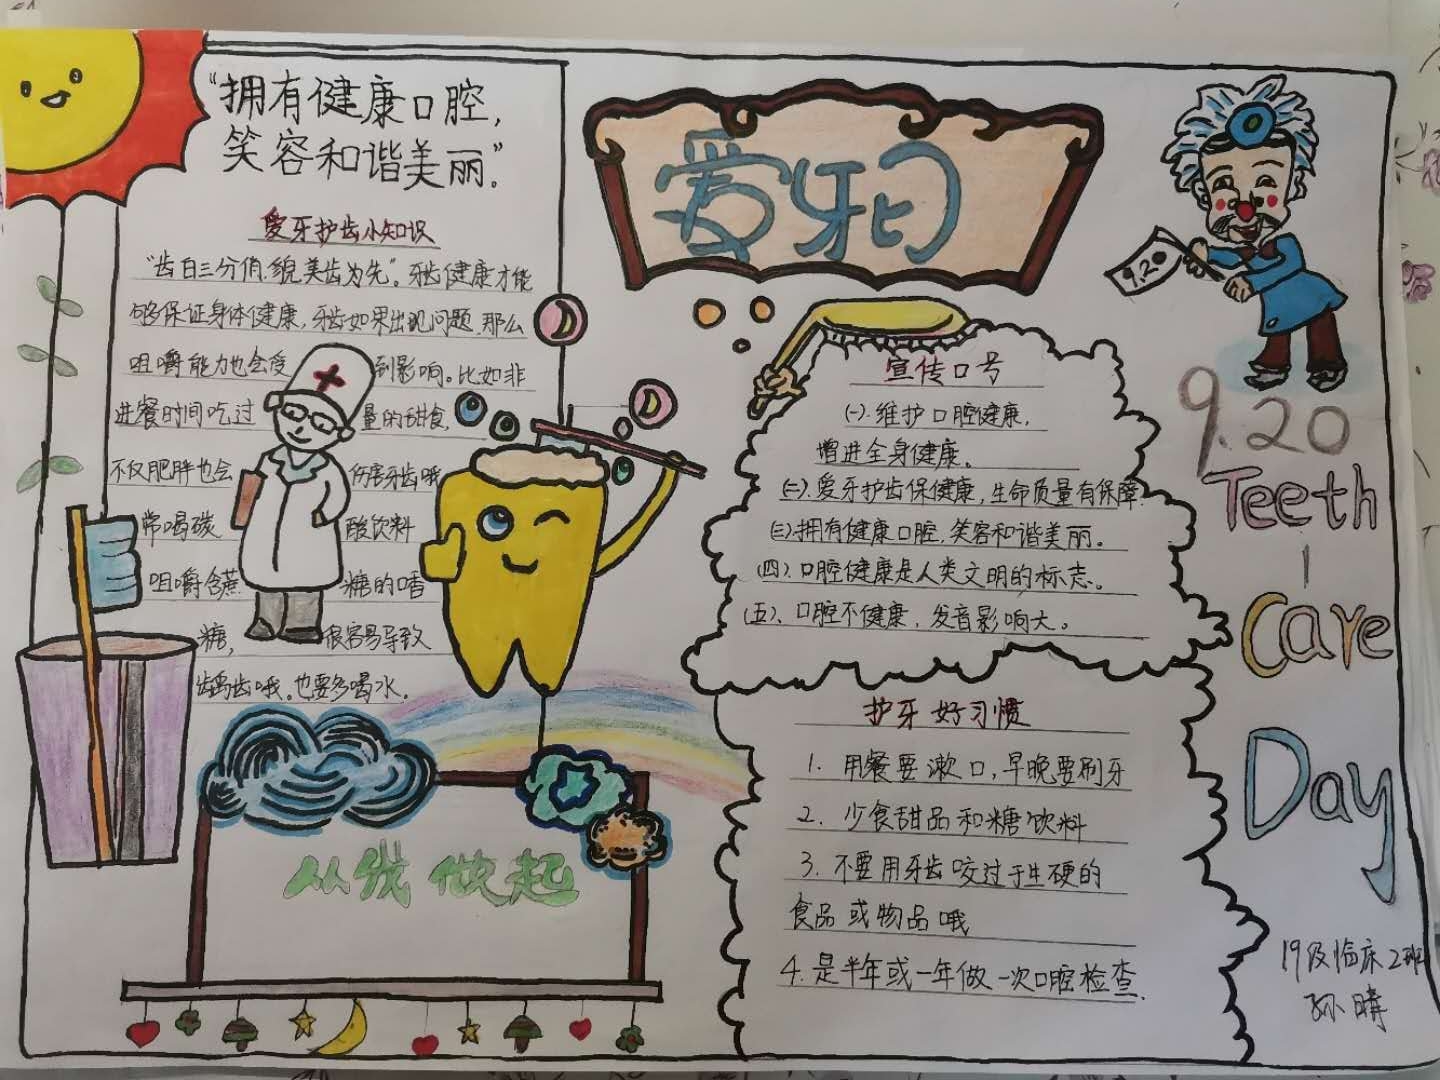 “拥有健康口腔,
笑容和谐美丽.”
爱牙护齿小知识
“齿白三分俏,貌美齿为先”。牙齿健康才能
够保证身体健康,牙齿如果出现问题,那么
咀嚼能力也会受到影响。比如非
进餐时间吃过量的甜食,
不仅肥胖也会伤害牙齿哦
常喝碳酸饮料
咀嚼含蔗糖的口香
糖,很容易导致
龋齿哦。也要多喝水。
从我做起
爱牙日
9.20
宣传口号
(一).维护口腔健康,
增进全身健康。
(二).爱牙护齿保健康,生命质量有保障.
(三).拥有健康口腔,笑容和谐美丽。
(四).口腔健康是人类文明的标志。
(五)、口腔不健康,发音影响大。
护牙好习惯
1. 用餐要漱口,早晚要刷牙
2. 少食甜品和糖饮料
3. 不要用牙齿咬过于生硬的
食品或物品哦
4.是半年或一年做一次口腔检查.
9.20
Teeth
-
Care
Day
19级临床2班
孙晴